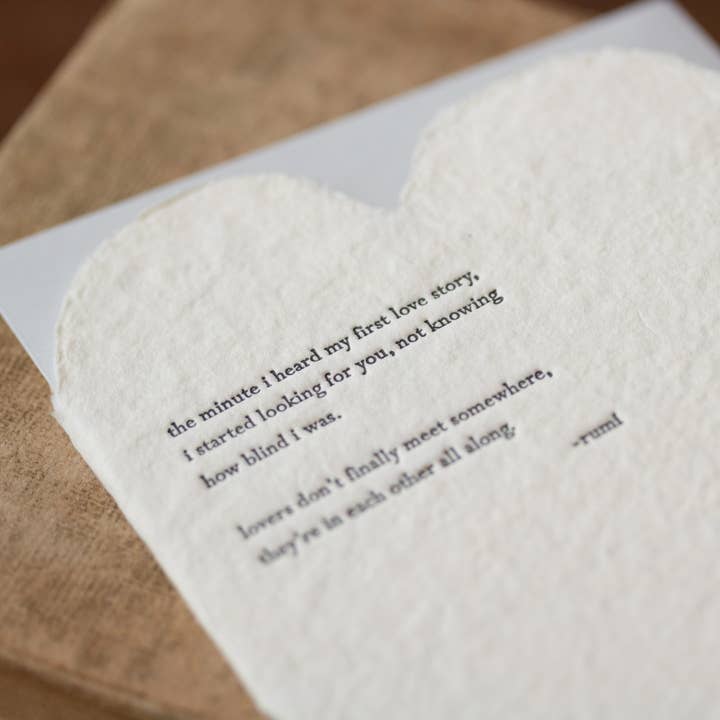 the minute i heard my first love story,
i started looking for you, not knowing
how blind i was.
lovers don't finally meet somewhere,
they're in each other all along.
-rumi